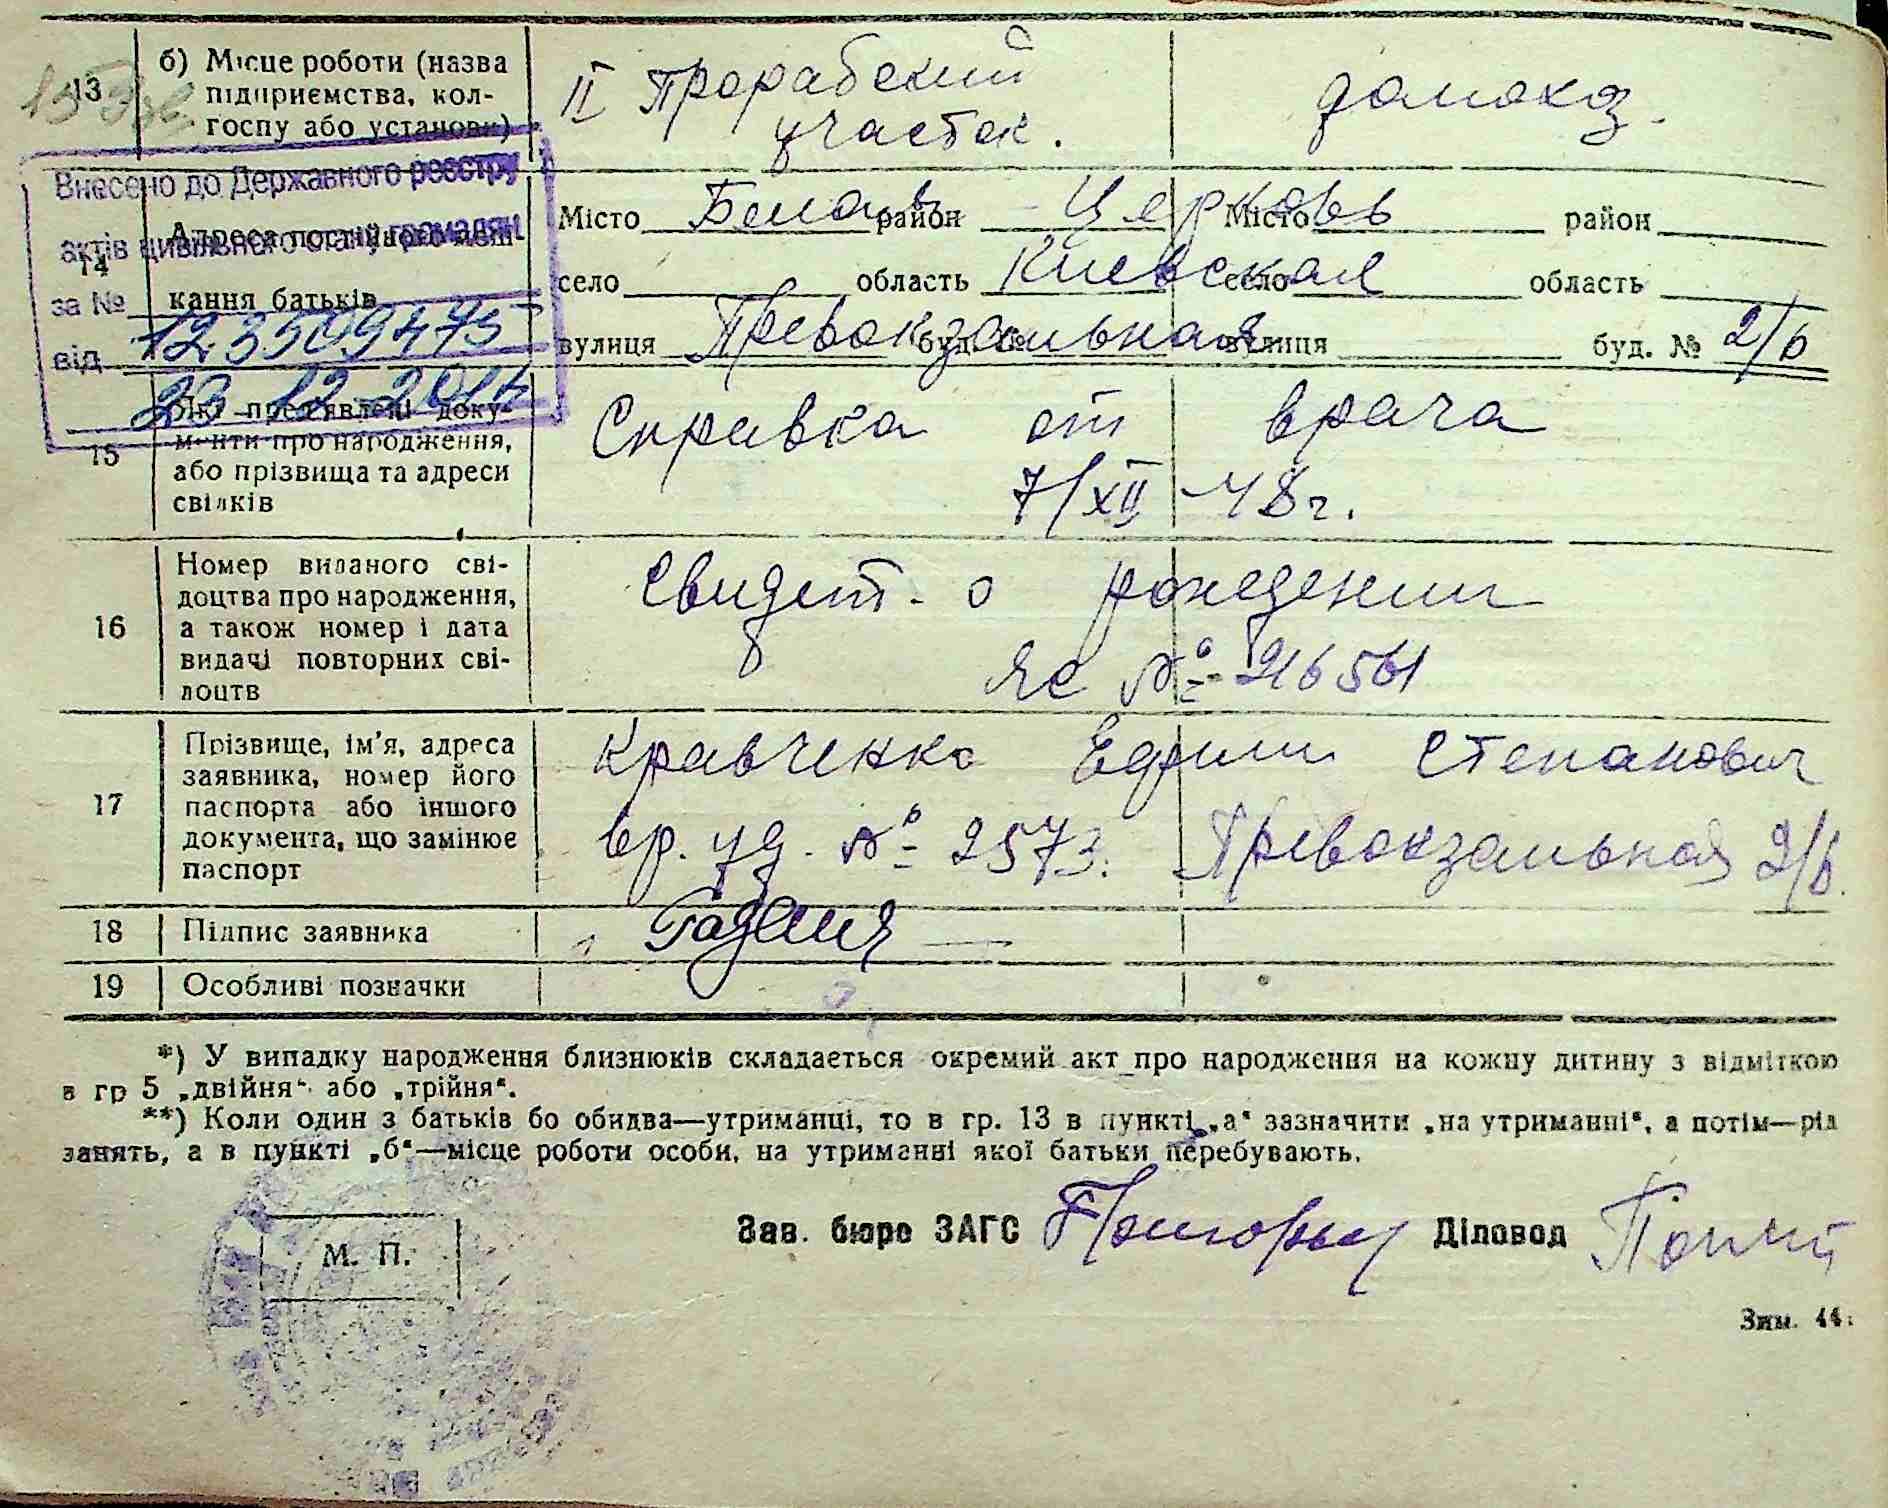 13 б) Місце роботи (назва підприємства, колгоспу або установи) II Прорабский участок. домохоз.
Внесено до Державного реєстру
актів цивільного стану громадян
за № 123509475
від 23 12 2014
14 Адреса постійного мешкання батьків
Місто Белая район Церковь Місто район
село область Киевская село область
вулиця Превокзальная буд. № вулиця буд. № 2/6
15 Які пред'явлені документи про народження, або прізвища та адреси свідків
Справка от врача
7/XII-48 г.
16 Номер виданого свідоцтва про народження, а також номер і дата видачі повторних свідоцтв
Свидет. о рождении
ЯС № 216561
17 Прізвище, ім'я, адреса заявника, номер його паспорта або іншого документа, що замінює паспорт
Кравченко Ефим Степанович
вр. уд. № 2573. Превокзальная 2/6.
18 Підпис заявника
19 Особливі позначки
*) У випадку народження близнюків складається окремий акт про народження на кожну дитину з відміткою
в гр 5 „двійня“ або „трійня“.
**) Коли один з батьків бо обидва—утриманці, то в гр. 13 в пункті „а“ зазначити „на утриманні“, а потім—рід
занять, а в пункті „б“—місце роботи особи, на утриманні якої батьки перебувають.
Зав. бюро ЗАГС Діловод
М. П.
Зим. 44